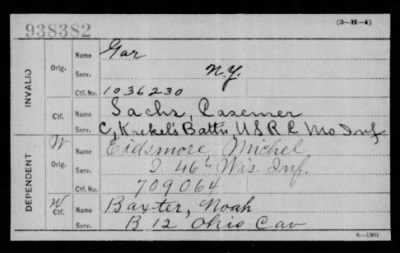 938382
(3-H-4)
INVALID
Orig.
Name Gar
Serv. N.Y.
Ctf. No. 1036230
Ctf.
Name Sachs, Casemer
Serv. C, Krekel's Batt'n, U.S.R.C. Mo Inf
DEPENDENT
W
Orig.
Name Eidsmore Michel
Serv. I 46" Wis. Inf.
Ctf. No. 709064
W
Ctf.
Name Baxter, Noah
Serv. B 12 Ohio Cav